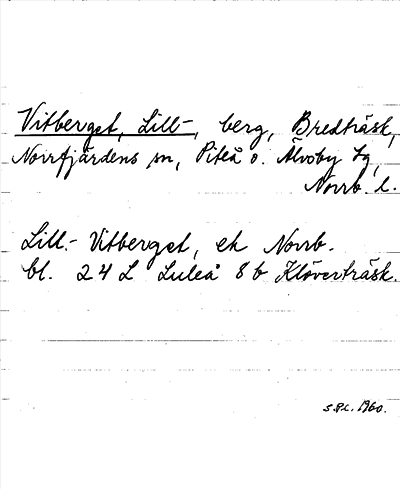 Vitberget, Lill-, berg, Bredträsk,
Norrfjärdens sn, Piteå o. Älvsby tg,
Norrb. l.
Lill.- Vitberget, ek Norrb.
bl. 24 L Luleå 8 b Klöverträsk.
S.P.L. 1960.